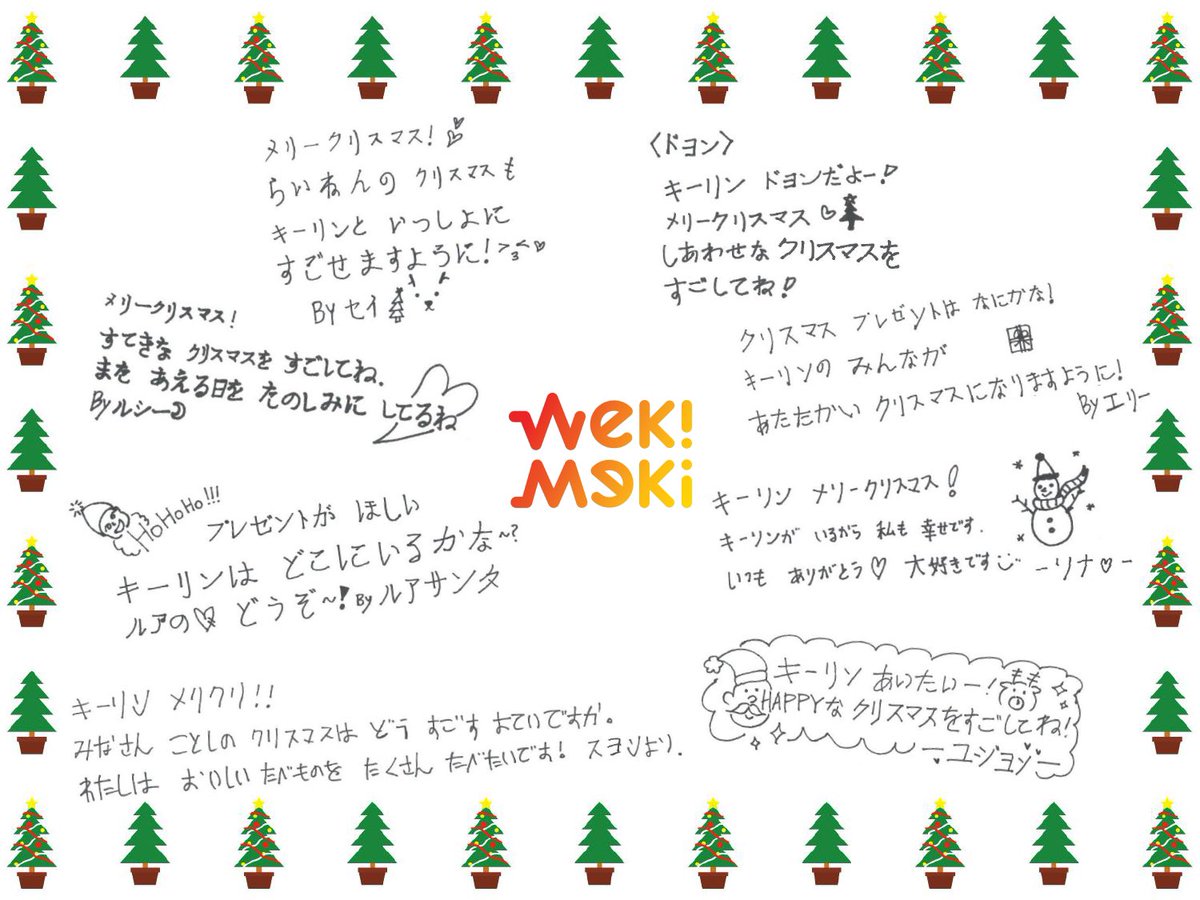 メリークリスマス!
らいねんの クリスマスも
キーリンと いっしよに
すごせますように! >3<
By セイ
〈ドヨン〉
キーリン ドヨンだよー!
メリークリスマス♡
しあわせな クリスマスを
すごしてね!
メリークリスマス!
すてきな クリスマスを すごしてね.
まを あえる日を たのしみに してるね
By ルシー
クリスマス プレゼントは なにかな!
キーリンの みんなが
あたたかい クリスマスになりますように!
By エリー
WEK!
MEKi
HoHoHo!!!
プレゼントが ほしい
キーリンは どこにいるかな~?
ルアの♡ どうぞ~! By ルアサンタ
キーリン メリークリスマス!
キーリンが いるから 私も 幸せです.
いつも ありがとう♡ 大好きです
ーリナ♡ー
キーリン メリクリ!!
みなさん ことしの クリスマスは どう すごす よていですか。
わたしは おいしい たべものを たくさん たべたいです! スヨンより.
キーリン あいたいー!
もも
HAPPYな クリスマスをすごしてね!
ーユジョンー